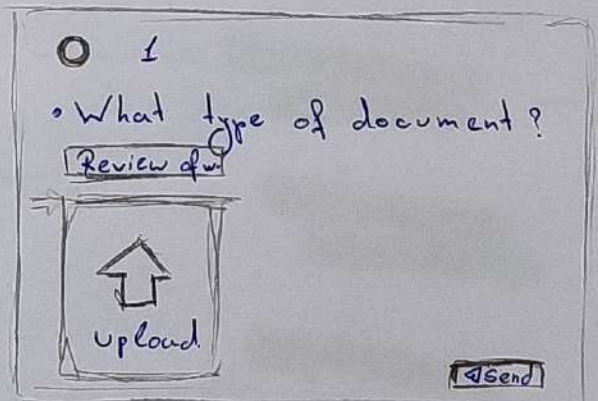 1
• What type of document?
Review of w.
upload
Send